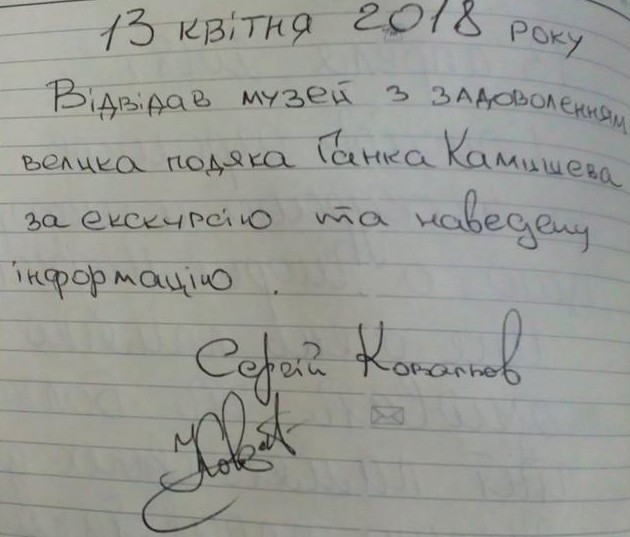 13 квітня 2018 року
Відвідав музей з задоволенням
велика подяка Ганка Камишева
за екскурсію та наведену
інформацію .
Сергій Ковальов